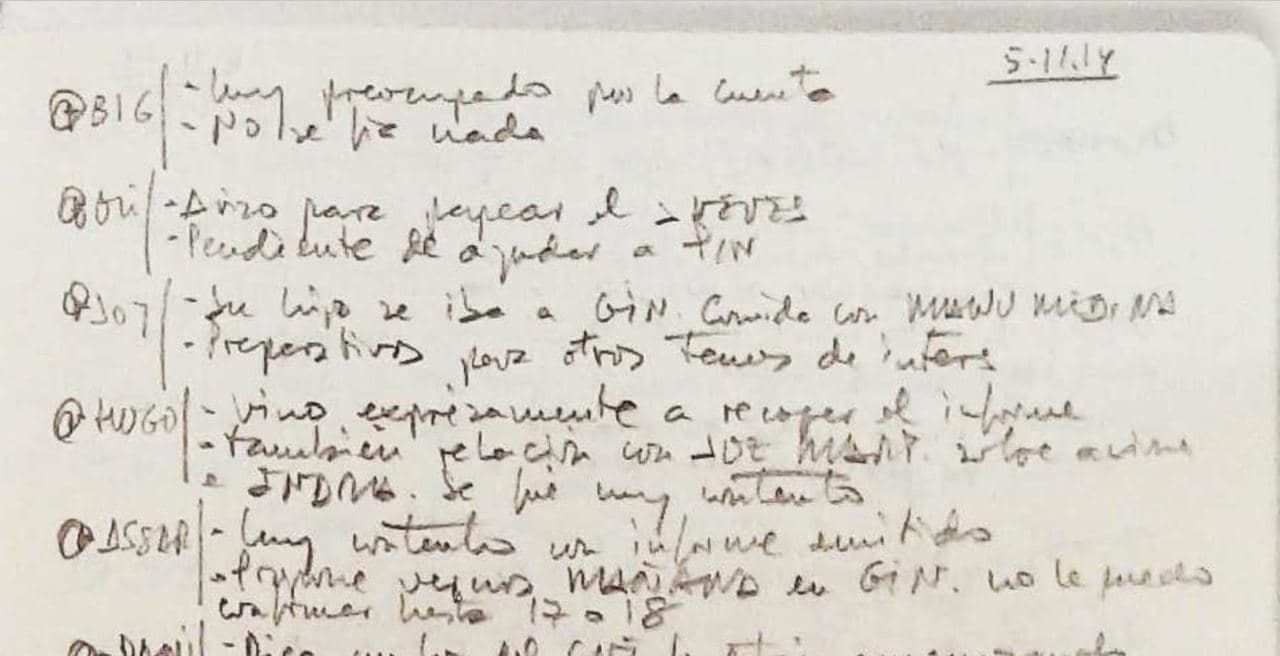 5.11.14
BIG - Muy preocupado por la cuenta
- NO se fía nada
- Aviso para papear el JUEVES
- Pendiente de ayudar a PIN
JO7 - Su hijo se iba a GIN. Comida con MANU MEDINA
- Preparativos para otros temas de interés
HUGO - Vino expresamente a recoger el informe
- también relación con JOZ MANP.
a INDRA. Se fue muy contento
- Muy contento con informe emitido
- Propone vernos MAÑANA en GIN. no le puedo
confirmar hasta 17 o 18
- Dice